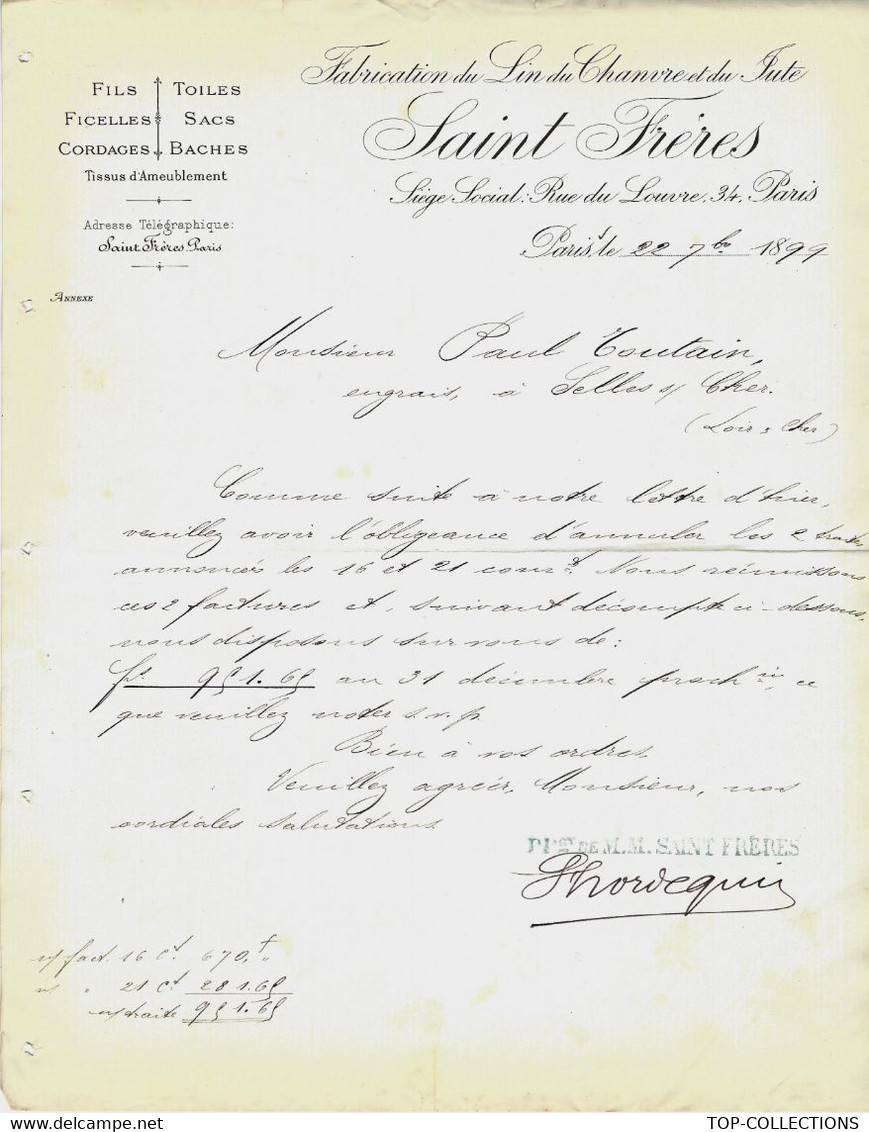 Fils Toiles
Ficelles Sacs
Cordages Baches
Tissus d'Ameublement
Adresse Télégraphique:
Saint Frères. Paris
Annexe
Fabrication du Lin du Chanvre et du Jute
Saint Frères
Siège Social: Rue du Louvre. 34. Paris
Paris, le 22 7bre 1899
Monsieur Paul Toutain,
engrais, à Selles s/ Cher.
(Loir & Cher)
Comme suite à notre lettre d'hier,
veuillez avoir l'obligeance d'annuler les 2 traites
annoncées les 16 et 21 court. Nous réunissons
ces 2 factures et, suivant décompte ci-dessous,
nous disposons sur vous de:
frs. 951.65 au 31 décembre prochin, ce
que veuillez noter s.v.p.
Bien à vos ordres.
Veuillez agréer, Monsieur, nos
cordiales salutations.
DE M.M. SAINT FRÈRES
n/ fact. 16 ct. 670,f "
n/ " 21 ct. 281.65
n/ traite 951.65
TOP-COLLECTIONS